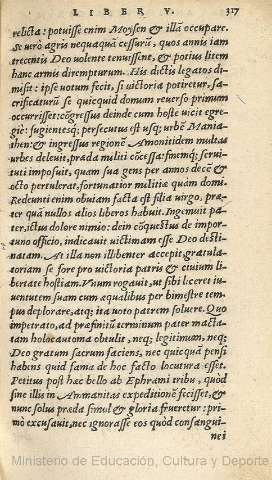 LIBER V. 317
relicta: potuisse enim Moysen & illā occupare.
Se uerò agris nequaquā cessurū, quos annis iam
trecentis Deo uolente tenuissent, & potius litem
hanc armis dirempturum. His dictis legatos di-
misit: ipse uotum fecit, si uictoria potiretur, sa-
crificaturū se quicquid domum reuerso primum
occurrisset: cōgressus deinde cum hoste uicit egre-
giè: fugientesq; persecutus est usq; urbē Mania-
then: & ingressus regionē Amonitidem multas
urbes deleuit, præda militi cōcessa: finemq; serui-
tuti imposuit, quam sua gens per annos decē &
octo pertulerat, fortunatior militiæ quàm domi.
Redeunti enim obuiam facta est filia uirgo, præ-
ter quā nullos alios liberos habuit. Ingemuit pa-
ter, ictus dolore nimio: dein cōquestus de impor-
tuno officio, indicauit uictimam esse Deo desti-
natam. At illa non illibenter accepit gratula-
toriam se fore pro uictoria patris & ciuium li-
bertate hostiam. Vnum rogauit, ut sibi liceret iu-
uentutem suam cum æqualibus per bimestre tem-
pus deplorare, atq; ita uoto patrem soluere. Quo
impetrato, ad præfinitū terminum pater macta-
tam holocautoma obtulit, neq; legitimum, neq;
Deo gratum sacrum faciens, nec quicquā pensi
habens quid fama de hoc facto locutura esset.
Petitus post hac bello ab Ephrami tribu, quòd
sine illis in Ammanitas expeditionē fecisset, &
nunc solus præda simul & gloria frueretur: pri-
mò excusauit, nec ignorasse eos quòd consangui-
nei
Ministerio de Educación, Cultura y Deporte